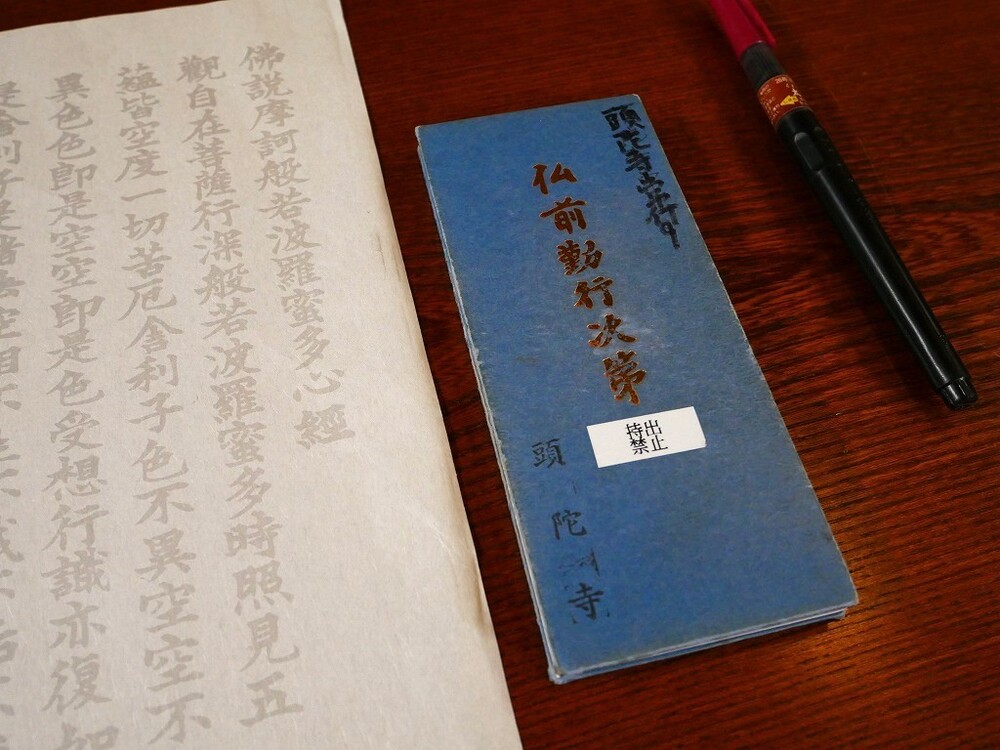 佛説摩訶般若波羅蜜多心經
觀自在菩薩行深般若波羅蜜多時照見五
蘊皆空度一切苦厄舍利子色不異空空不
異色色即是空空即是色受想行識亦復如
是舍利子是諸法空相不生不滅不垢不
頭陀寺
仏前勤行次第
持出
禁止
頭陀
寺